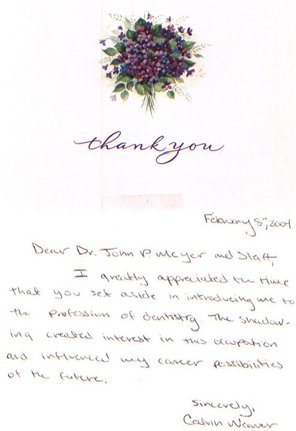 thank you
February 8, 2004
Dear Dr. John P. Meyer and Staff,
I greatly appreciated the time
that you set aside in introducing me to
the profession of dentistry. The shadow-
ing created interest in this occupation
and influenced my career possibilities
of the future.
Sincerely,
Calvin Weaver